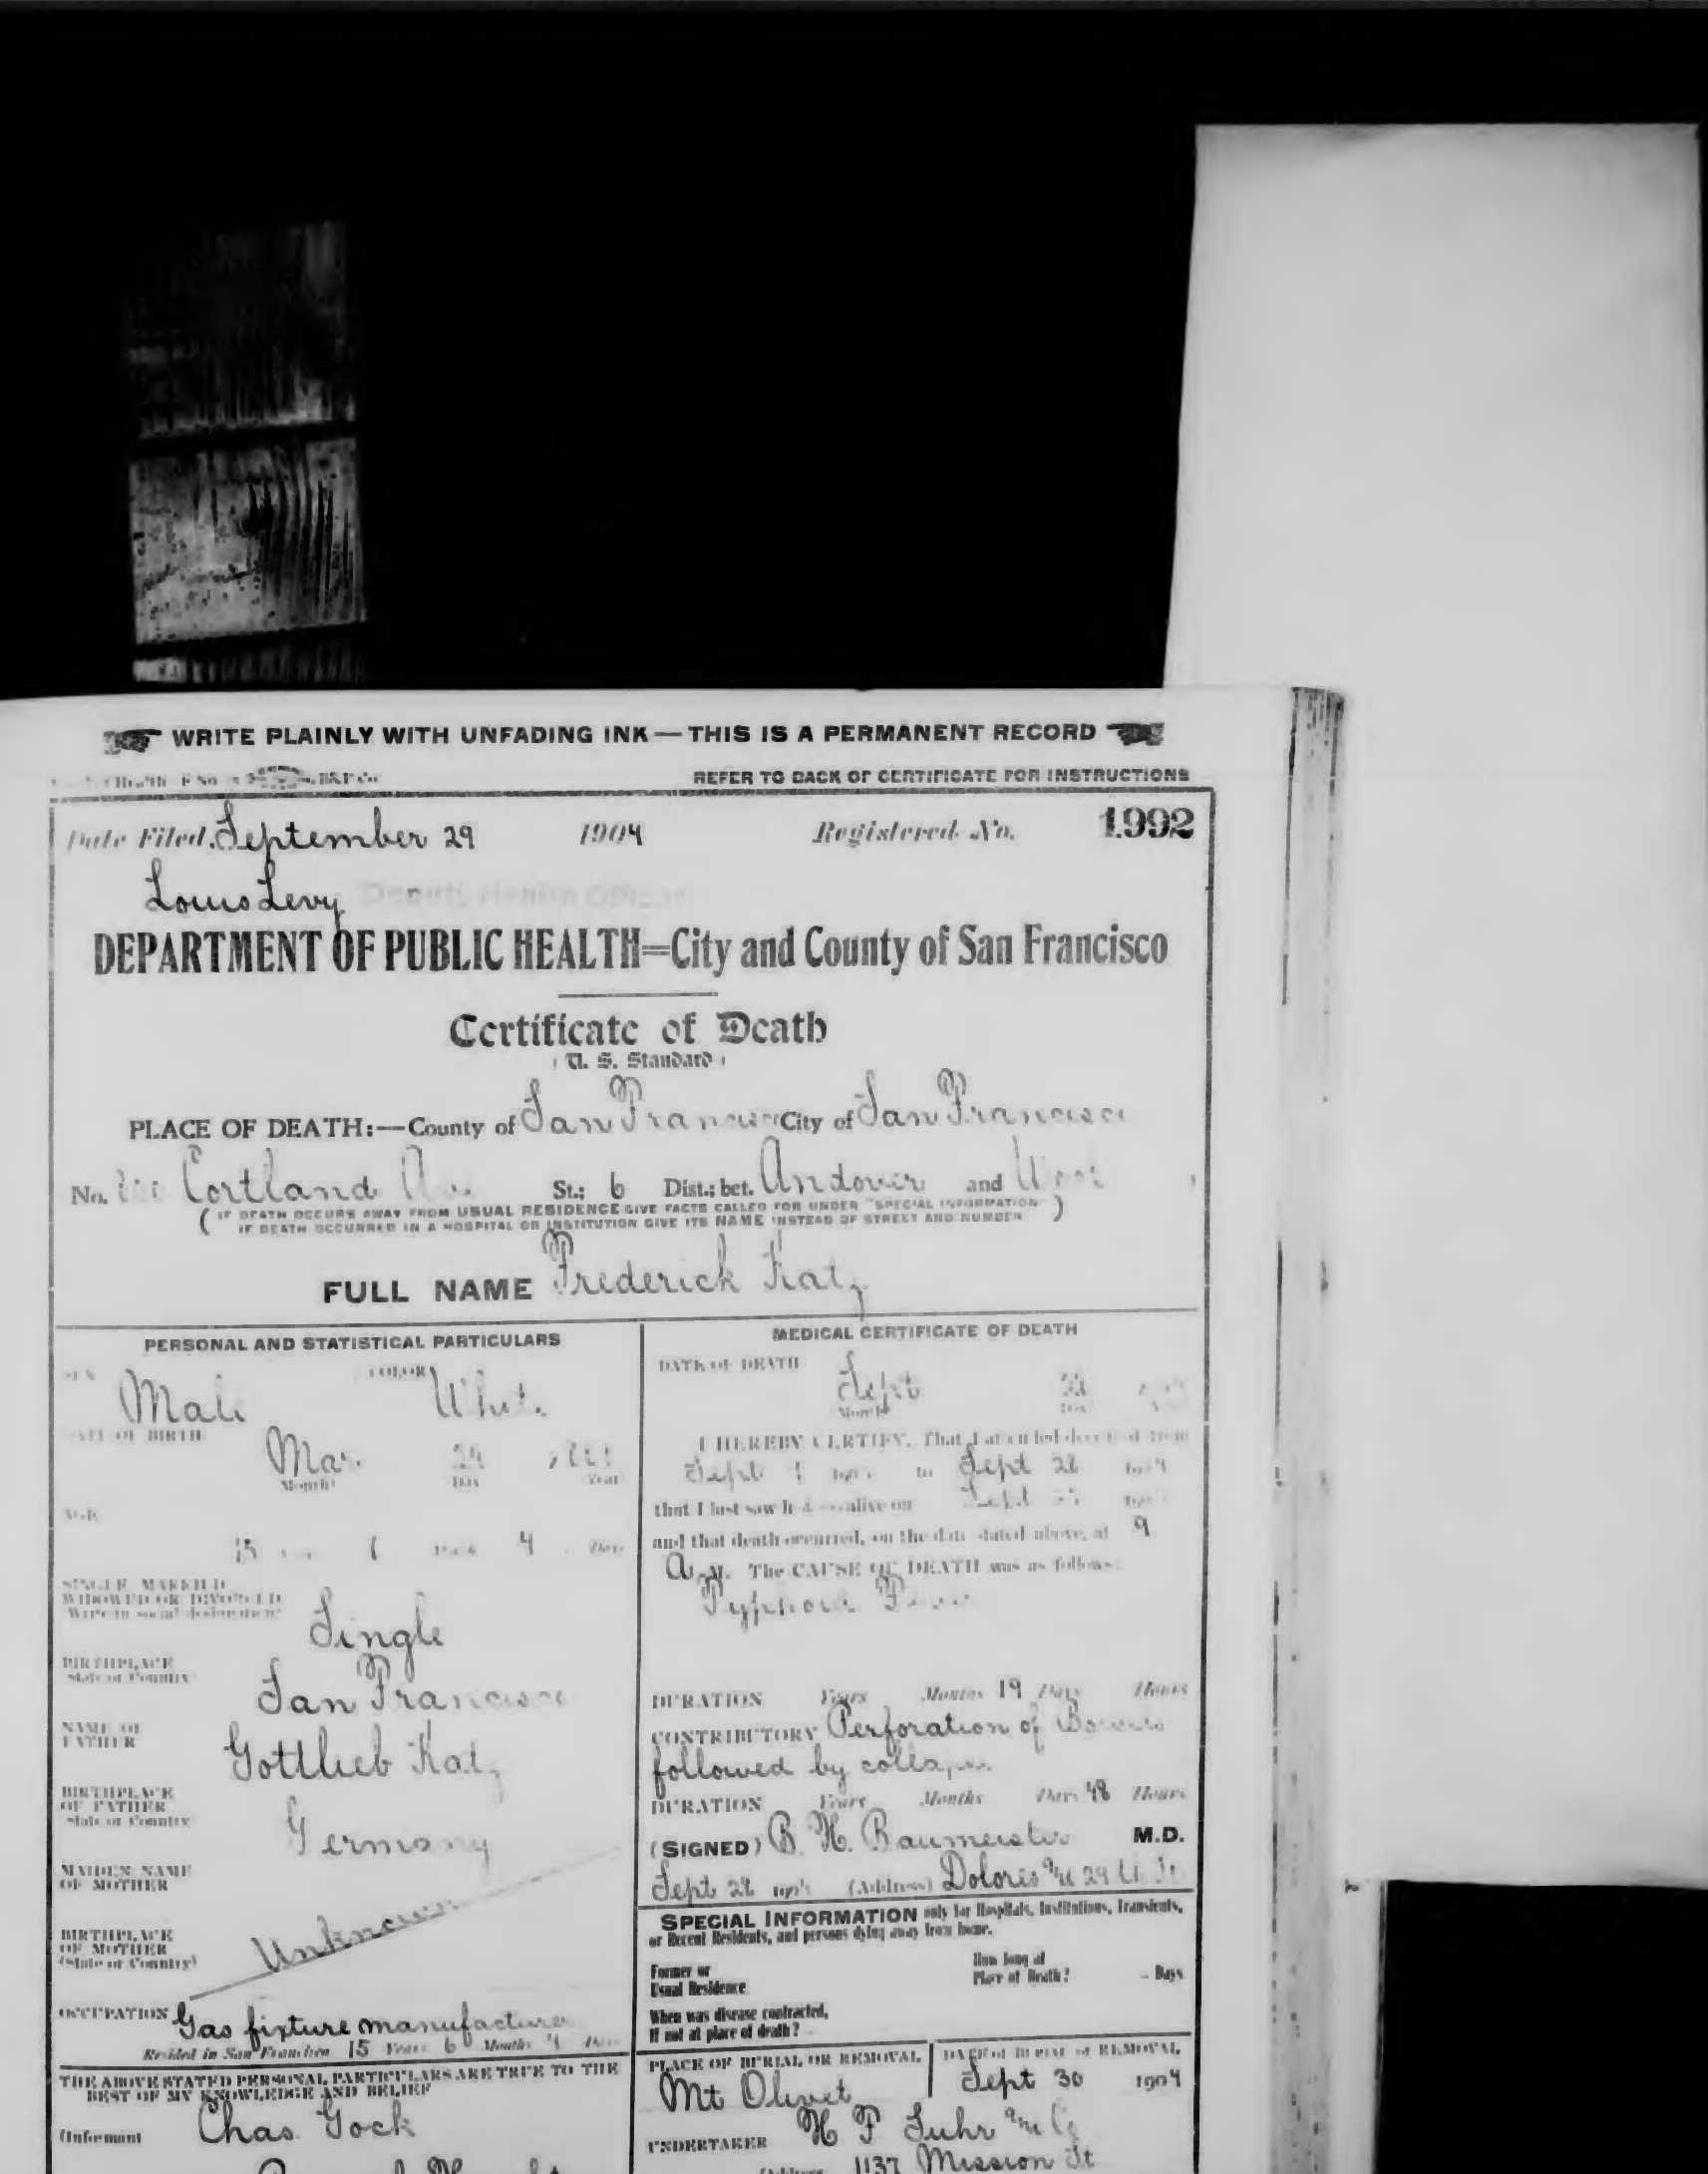 WRITE PLAINLY WITH UNFADING INK — THIS IS A PERMANENT RECORD
REFER TO BACK OF CERTIFICATE FOR INSTRUCTIONS
Date Filed, September 29 1904 Registered No. 1992
Louis Levy Deputy Health Officer
DEPARTMENT OF PUBLIC HEALTH=City and County of San Francisco
Certificate of Death
(U. S. Standard)
PLACE OF DEATH:—County of San Francisco City of San Francisco
No. Cortland Av. St.; 6 Dist.; bet. Andover and
( IF DEATH OCCURS AWAY FROM USUAL RESIDENCE GIVE FACTS CALLED FOR UNDER "SPECIAL INFORMATION"
IF DEATH OCCURRED IN A HOSPITAL OR INSTITUTION GIVE ITS NAME INSTEAD OF STREET AND NUMBER )
FULL NAME Frederick Katz
PERSONAL AND STATISTICAL PARTICULARS
SEX Male COLOR White
DATE OF BIRTH
Mar. 24
Month Day Year
AGE
15 6 4 Days
SINGLE, MARRIED,
WIDOWED OR DIVORCED
Write in social designation
Single
BIRTHPLACE
State or Country
San Francisco
NAME OF
FATHER
Gottlieb Katz
BIRTHPLACE
OF FATHER
State or Country
Germany
MAIDEN NAME
OF MOTHER
BIRTHPLACE
OF MOTHER
(State or Country)
Unknown
OCCUPATION Gas fixture manufacturer
Resided in San Francisco 15 Years 6 Months 4 Days
THE ABOVE STATED PERSONAL PARTICULARS ARE TRUE TO THE
BEST OF MY KNOWLEDGE AND BELIEF
(Informant Chas. Gock
MEDICAL CERTIFICATE OF DEATH
DATE OF DEATH
Sept 28
Month Day
I HEREBY CERTIFY, That I attended deceased from
Sept 1 to Sept 28 1904
that I last saw h alive on Sept
and that death occurred, on the date stated above, at 9
A. M. The CAUSE OF DEATH was as follows:
Typhoid Fever
DURATION Years Months 19 Days Hours
CONTRIBUTORY Perforation of Bowels
followed by collapse
DURATION Years Months Days 48 Hours
(SIGNED) B. H. Baumeister M.D.
Sept 28 1904 (Address) Dolores and 29th St.
SPECIAL INFORMATION only for Hospitals, Institutions, Transients,
or Recent Residents, and persons dying away from home.
Former or
Usual Residence
How long at
Place of Death? Days
When was disease contracted,
If not at place of death?
PLACE OF BURIAL OR REMOVAL
Mt Olivet
DATE of BURIAL or REMOVAL
Sept 30 1904
UNDERTAKER H F Suhr and Co
1137 Mission St